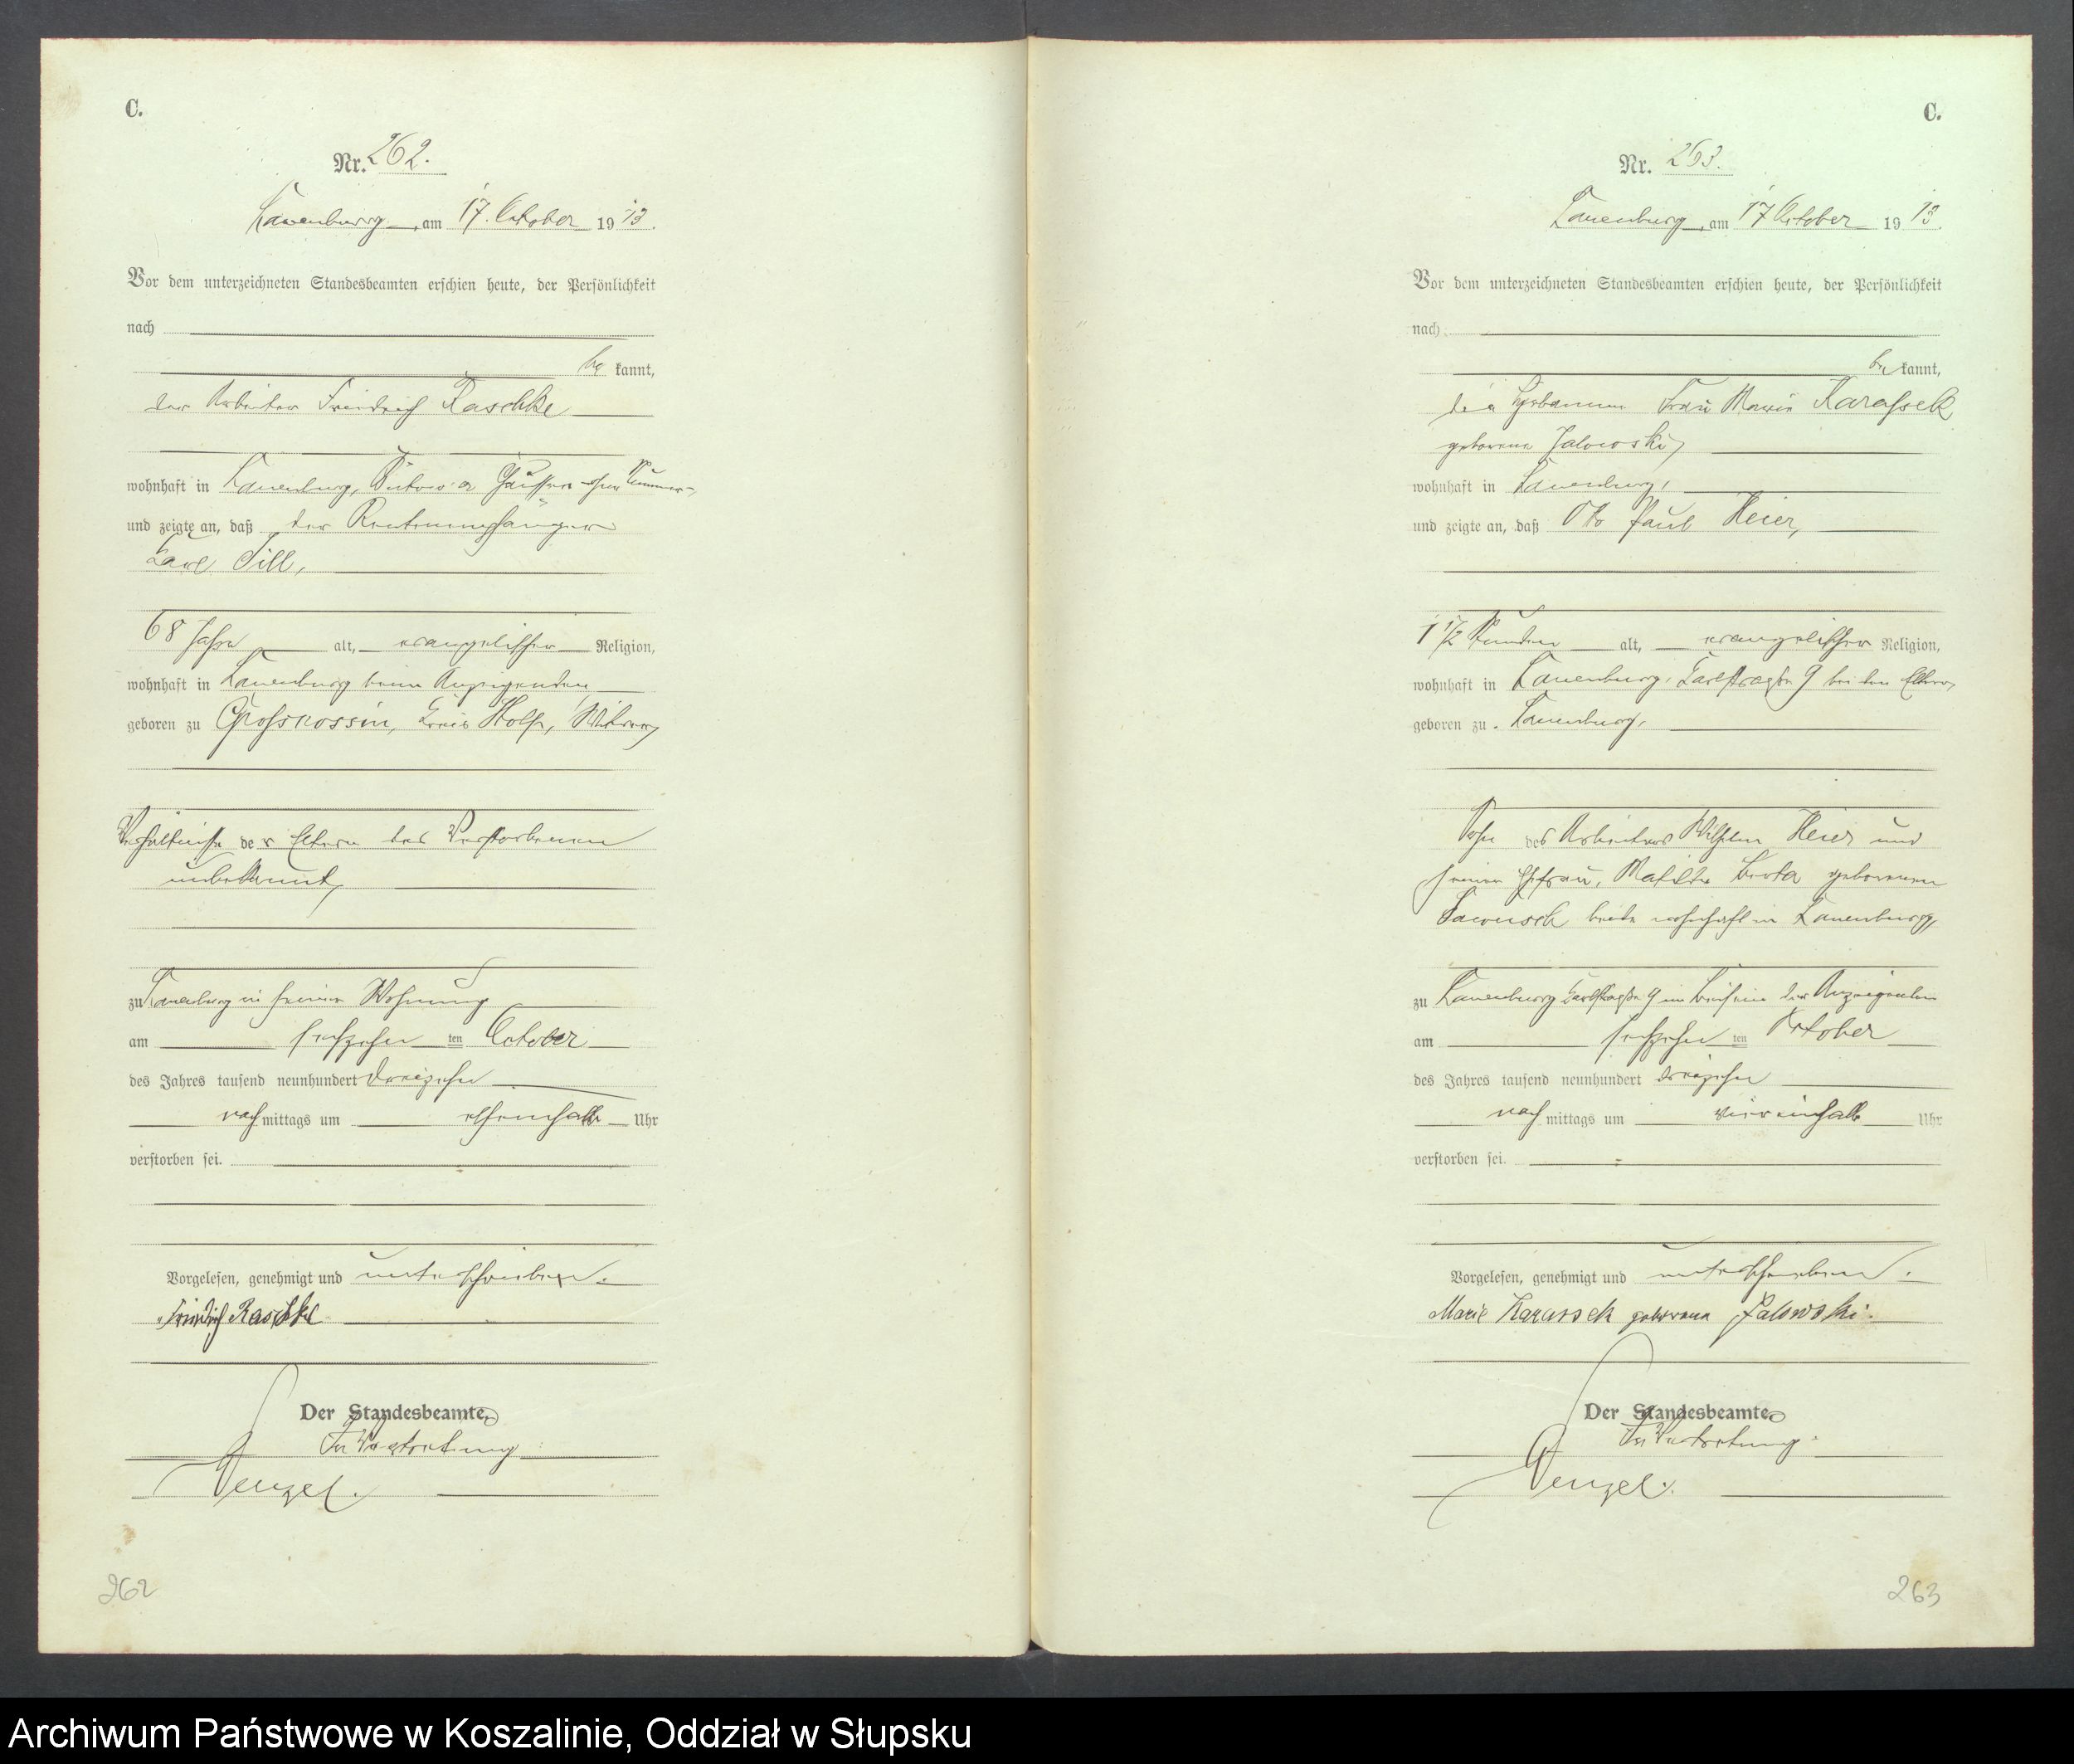 C.
Nr. 262.
Lauenburg, am 17. October 1913.
Vor dem unterzeichneten Standesbeamten erschien heute, der Persönlichkeit
nach
be kannt,
der Arbeiter Friedrich Raschke
wohnhaft in Lauenburg, Bütower Chaussee ohne Nummer
und zeigte an, daß der Rentenempfänger
Carl Till,
68 Jahre alt, evangelischer Religion,
wohnhaft in Lauenburg beim Anzeigenden
geboren zu Grossnossin, Kreis Stolp, Witwer,
Verhältnisse der Eltern des Verstorbenen
unbekannt,
zu Lauenburg in seiner Wohnung
am sechszehn ten October
des Jahres tausend neunhundert dreizehn
nach mittags um elfeinhalb Uhr
verstorben sei.
Vorgelesen, genehmigt und unterschrieben.
Friedrich Raschke
Der Standesbeamte.
In Vertretung
Wenzel.
262
C.
Nr. 263.
Lauenburg, am 17 October 1913.
Vor dem unterzeichneten Standesbeamten erschien heute, der Persönlichkeit
nach
be kannt,
die Hebamme Frau Marie Karassek
geborene Jalowski,
wohnhaft in Lauenburg,
und zeigte an, daß Otto Paul Heier,
1 1/2 Stunden alt, evangelischer Religion,
wohnhaft in Lauenburg, Karlstraße 9 bei den Eltern,
geboren zu Lauenburg,
Sohn des Arbeiters Wilhelm Heier und
seiner Ehefrau, Mathilde Berta geborenen
beide wohnhaft in Lauenburg,
zu Lauenburg Karlstraße 9 im Beisein der Anzeigenden
am sechszehn ten October
des Jahres tausend neunhundert dreizehn
nach mittags um viereinhalb Uhr
verstorben sei.
Vorgelesen, genehmigt und unterschrieben.
Marie Karassek geborene Jalowski.
Der Standesbeamte.
In Vertretung.
Wenzel.
263
Archiwum Państwowe w Koszalinie, Oddział w Słupsku